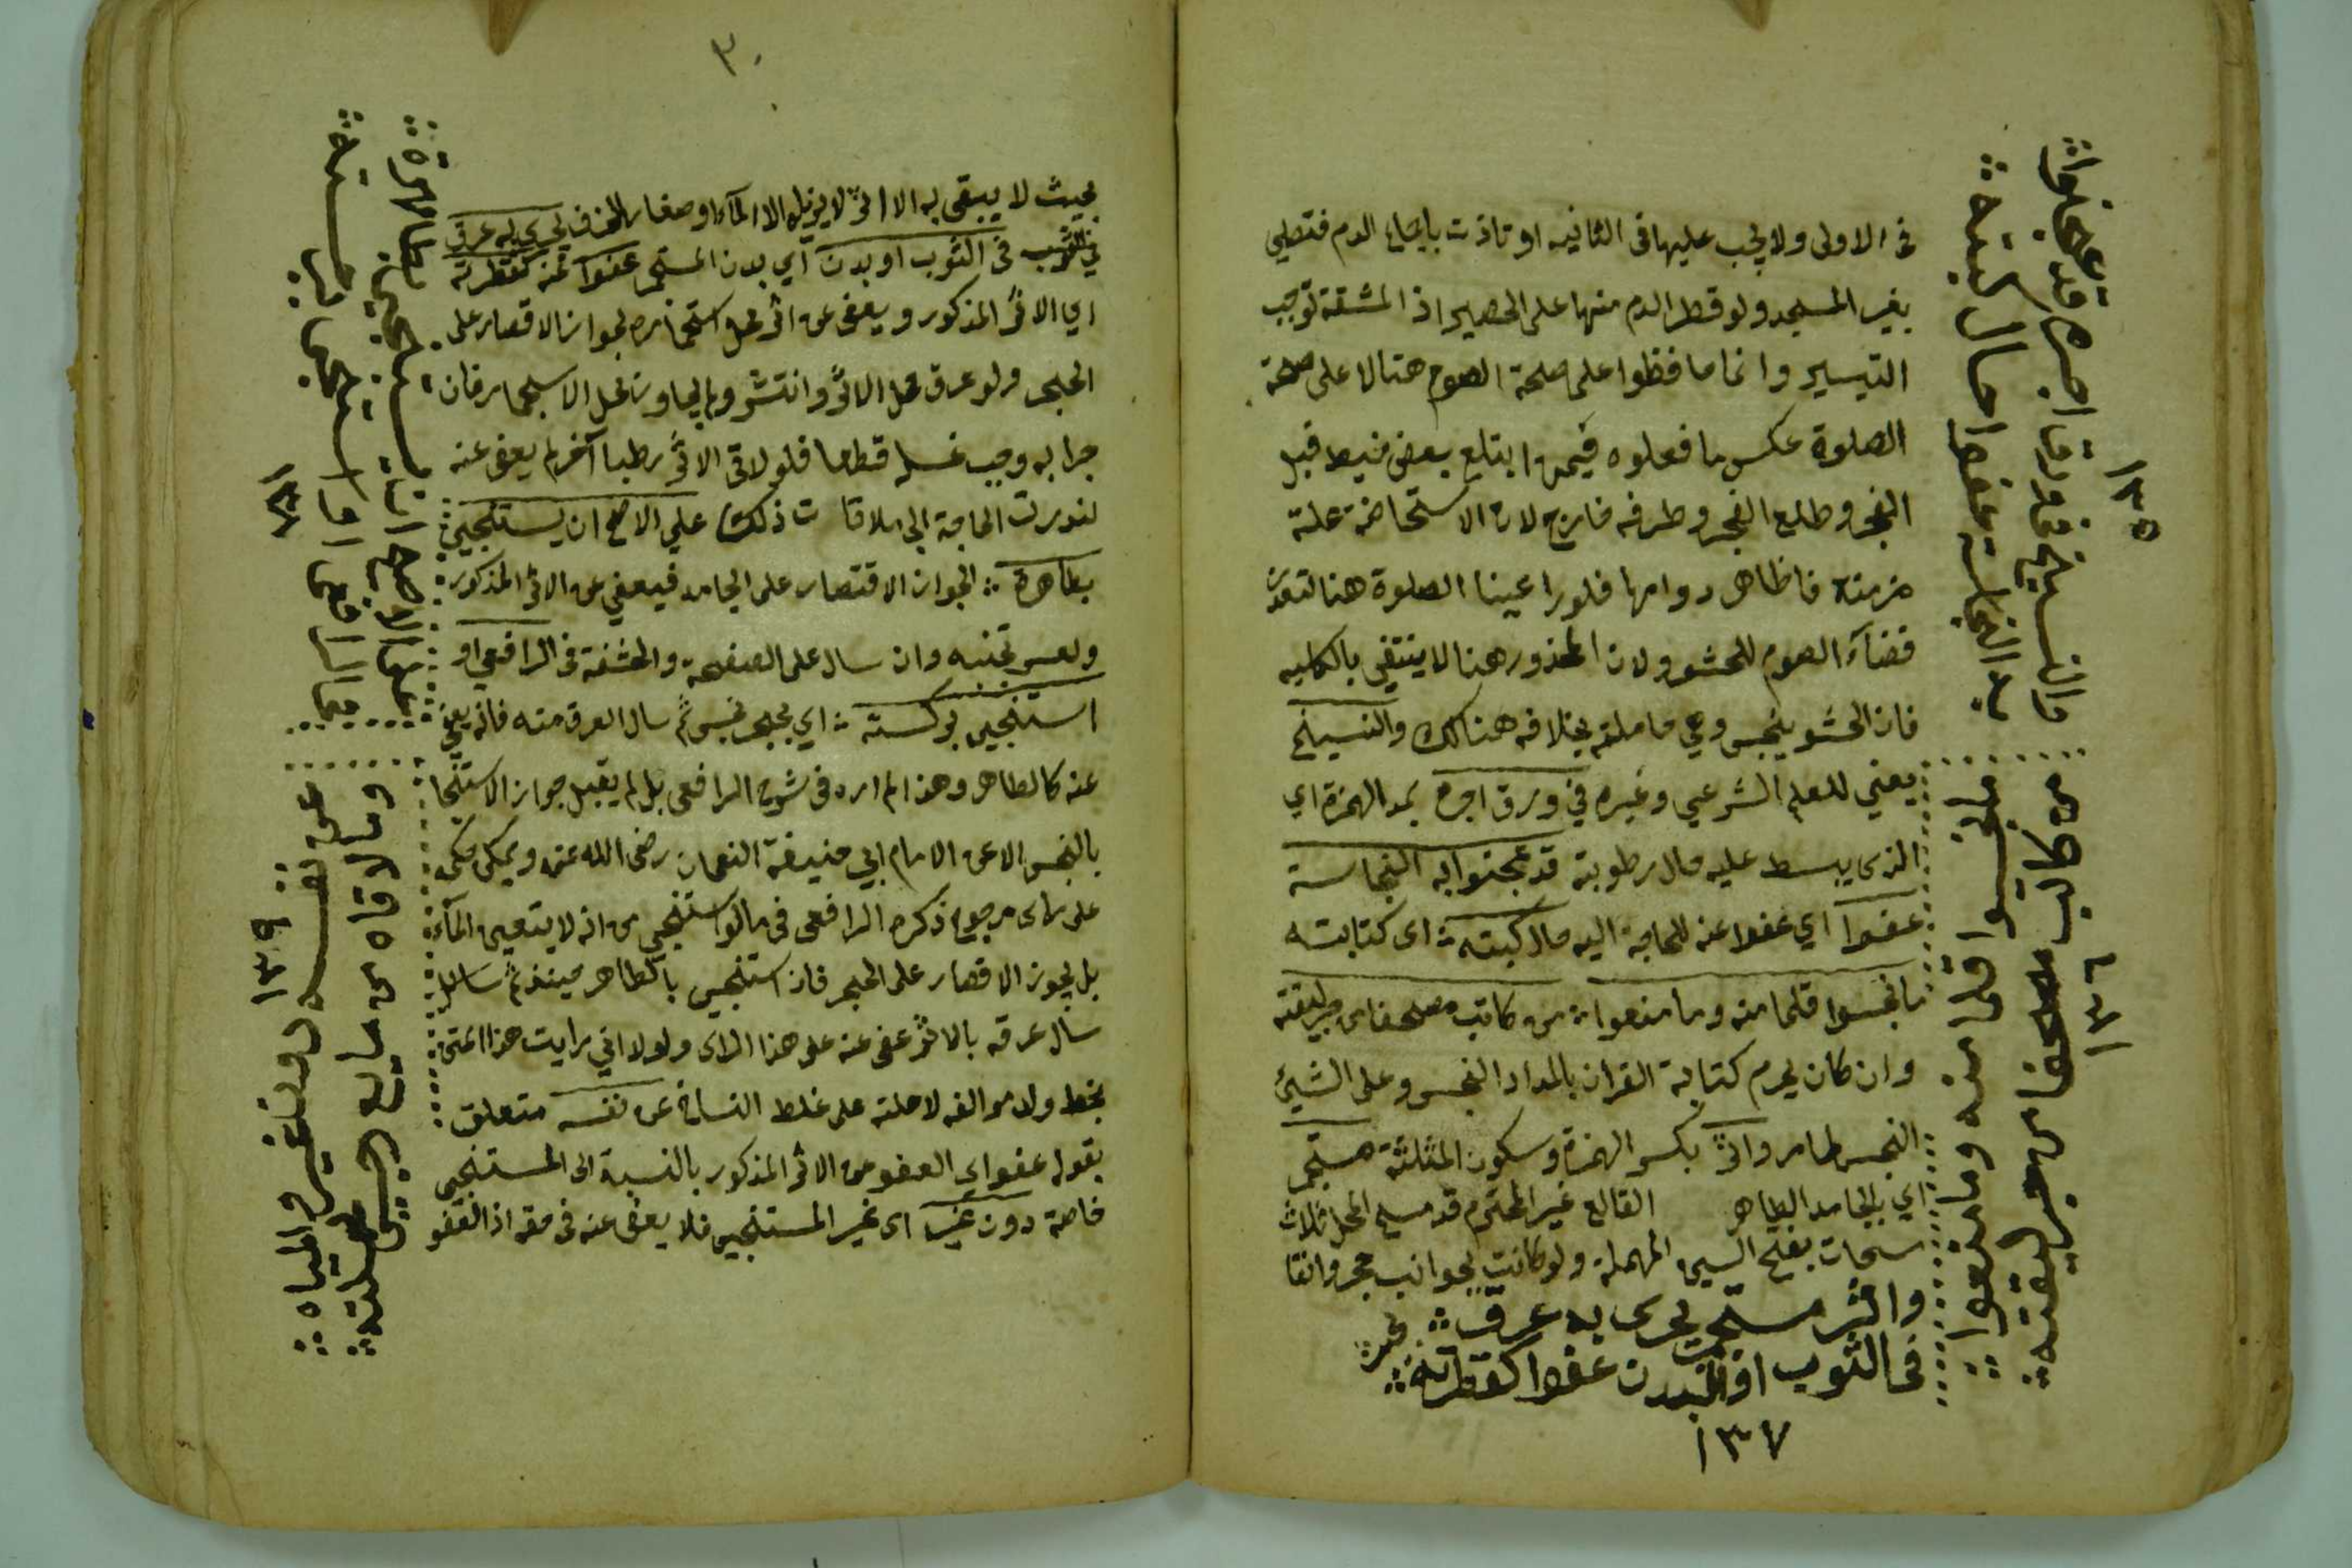 فى الاولى ولا يجب عليها فى الثانيه او تاذت بايصاء الدم فتصلي
بغير المسجد ولو قطر الدم منها على الحصير اذ المشقة توجب
التيسير وانما حافظوا على صلحة الصوم هنا لا على صحة
الصلوة عكس ما فعلوه فيمن ابتلع بعض خيط قبل
الفجر وطلع الفجر وطرفه خارج لان الاستحاضة علة
مزمنة فالظاهر دوامها فلو راعينا الصلوة هنا لتعذر
قضآء الصوم للحشو ولان المحذور هنا لا ينتفي بالكليه
فان الحشو ينجس وهي حاملته بخلافه هناك والنسيخ
يعني للعلم الشرعي وغيره في ورق اجره بمد الهمزة اي
الذى يبسط عليه حال رطوبة قد عجنوا به النجاسة
عفوا اي عفوا عنه للحاجة اليه حال كبته اى كتابته
ما نجسوا قلما منه وما منعوا من كاتب مصحفا من حبر ليقته
وان كان يحرم كتابة القران بالمداد النجس وعلى الشيئ
النجس لما مر واثر بكسر الهمزة وسكون المثلثة مستجمر
اي بالجامد الطاهر القالع غير المحترم قد مسح المحل ثلاث
سحات بفتح السين المهملة ولو كانت بجوانب حجر وانقا
واثر مستجمر يجرى به عرق
فى الثوب او البدن عفوا كقطرته
١٣٧
والنسيخ فى ورق اجره قد عجنوا
به النجاسة عفوا حال كبته
١٣٥
من كاتب مصحفا من حبر ليقته
ما نجسوا قلما منه وما منعوا
١٣٦
٣٠
بحيث لا يبقى به الا اثر لا يزيله الا المآء او صغار الخزف يجري له عرق
في الثوب فى الثوب او بدن اي بدن المستجمر عفوا عنه كقطرته
اي الاثر المذكور ويعفى عن اثر محل استجماره لجواز الاقصار على
الحجر ولو عرق محل الاثر وانتشر ولم يجاوز محل الاستجمار فان
جرا به وجب غسله قطعا فلو لاقى الاثر رطبا آخر لم يعف عنه
لندرت الحاجة الي ملاقات ذلك علي الاصح ان يستنجي
بطاهرة لجواز الاقتصار على الجامد فيعفي عن الاثر المذكور
ولعسر تجنبه وان سال على الصفحة والحشفة فى الرافعي او
استنجي بركسته اي بحجر نجس ثم سال العرق منه فانه يعفى
عنه كالطاهر وهذا لم اره فى شرح الرافعى بل لم يقبل جواز الاستنجا
بالنجس الا عن الامام ابي حنيفة النعمان رضى الله عنه ويمكن
على راى مرجوح ذكره الرافعى فى ما لو استنجي من انه لا يتعين المآء
بل يجوز الاقصار على الحجر فان استنجي بالطاهر حينئذ ثم
سال عرقه بالاثر عفى عنه على هذا الراى ولولا اني رايت هذا المتن
بخط ولد موالفه لاحلته على غلط النساخ عن نفسه متعلق
بقوله عفوا اي العفو عن الاثر المذكور بالنسبة الى المستنجي
خاصة دون غيره اى غير المستنجي فلا يعفى عنه فى حقه اذ العفو
على الاصح ان يستنجي بطاهرة
١٣٨
عن نفسه دون غير والمياه
وما لاقاه من مايع
١٣٩